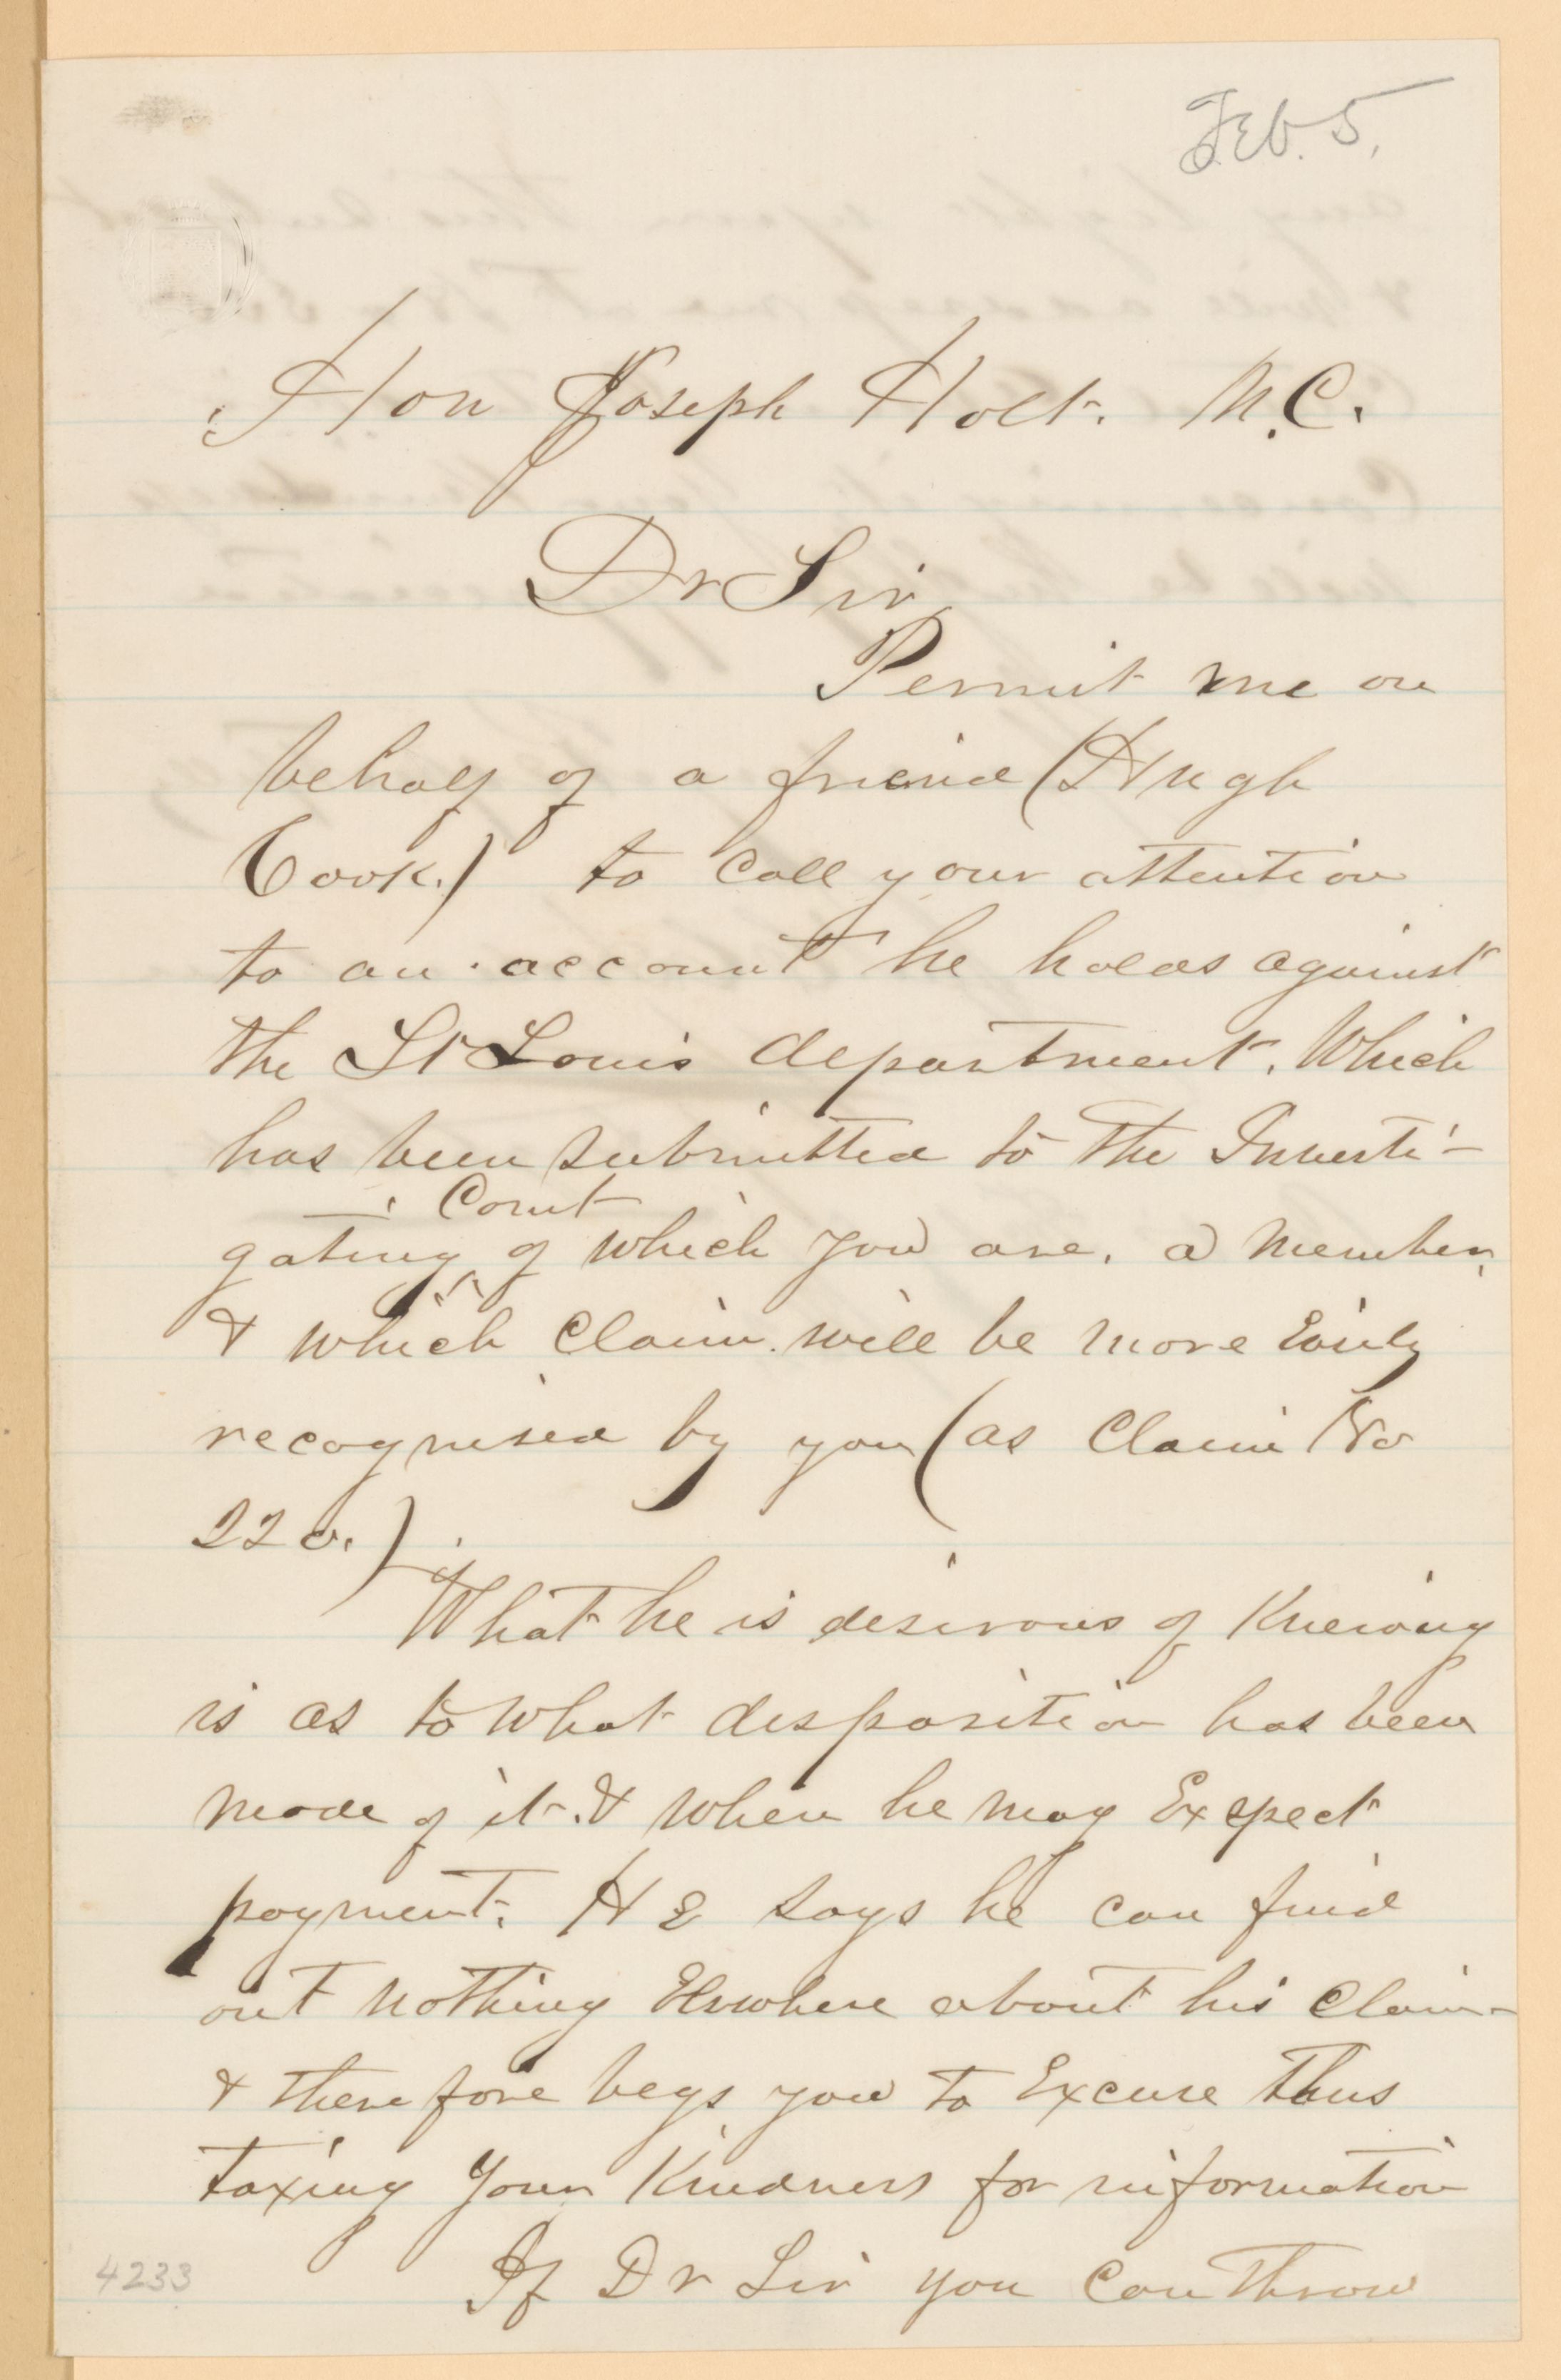 Feb. 5.
Hon Joseph Holt. M.C.
Dr Sir
Permit me on
behalf of a friend (Hugh
Cook.) to call your attention
to an account he holds against
the St Louis department. Which
has been submitted to the Investi-
gating Court of which you are. a member,
& which Claim will be more Easily
recognised by you (as Claim No
220.)
What he is desirous of Knowing
is as to what disposition has been
made of it. & when he may Expect
payment. HE says he can find
out nothing Elswhere about his Claim-
& therefore begs you to Excuse thus
taxing your Kindness for information
If Dr Sir you can throw
4233